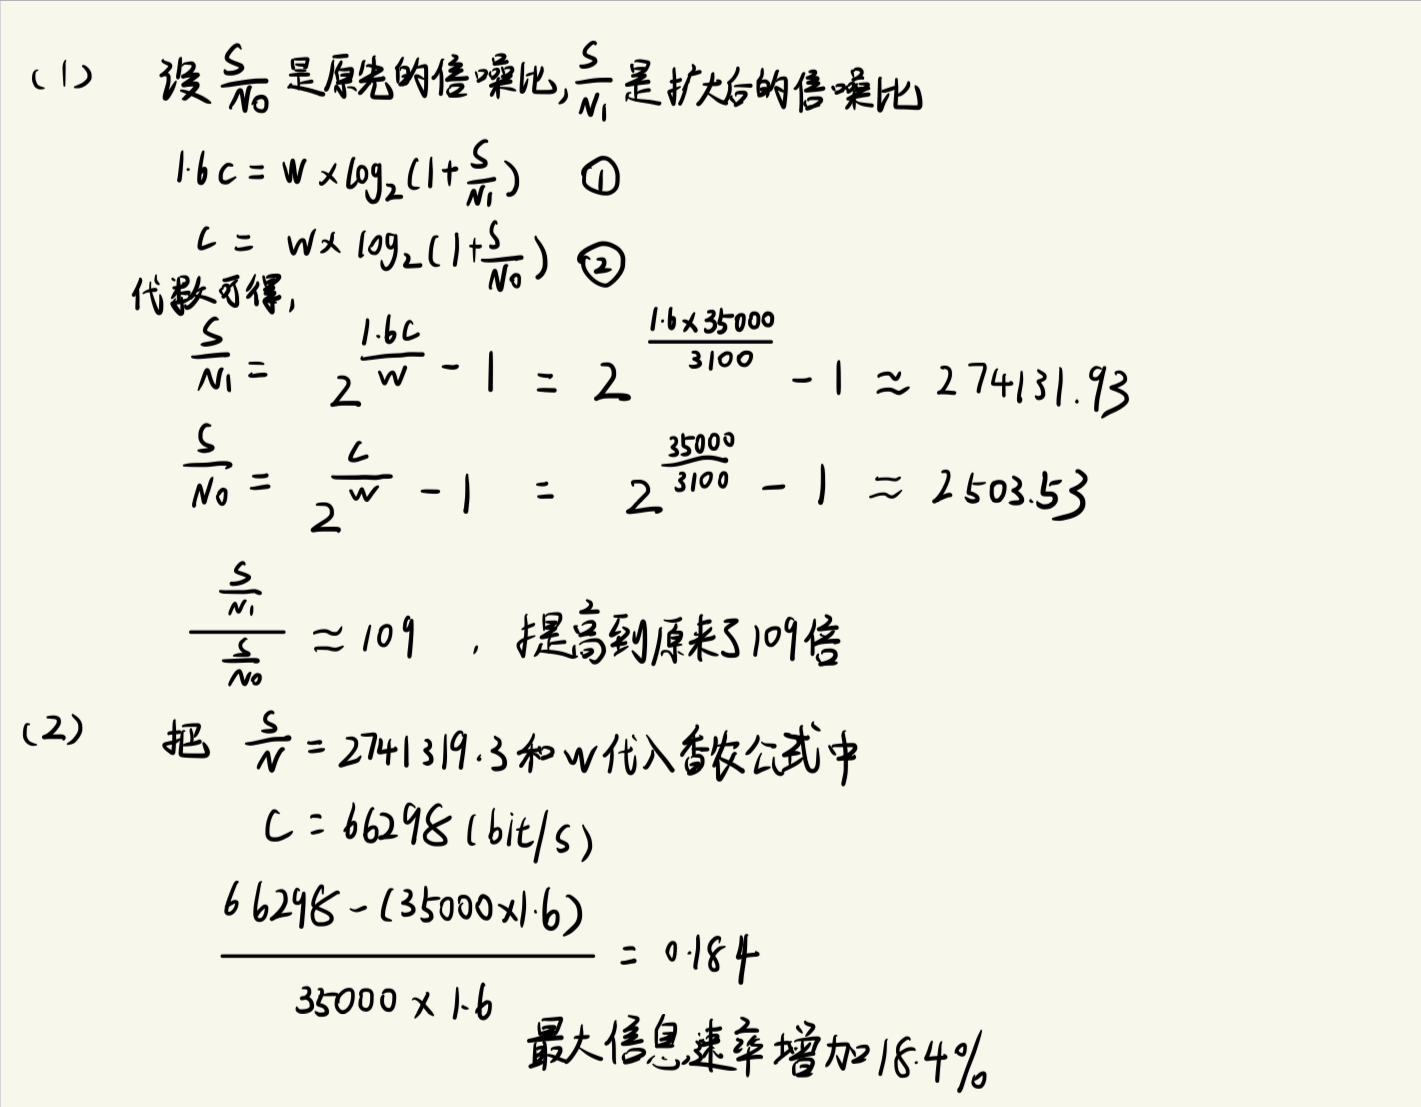 (1) 设 S/N0 是原先的信噪比, S/N1 是扩大后的信噪比
1.6C = W × log₂(1+S/N1) ①
C = W× log₂(1+S/N0) ②
代数可得,
S/N1 = 2^(1.6C/W) - 1 = 2^(1.6×35000/3100) - 1 ≈ 274131.93
S/N0 = 2^(C/W) - 1 = 2^(35000/3100) - 1 ≈ 2503.53
(S/N1)/(S/N0) ≈ 109 , 提高到原来了109倍
(2) 把 S/N = 2741319.3 和 W代入香农公式中
C = 66298 (bit/s)
(66298 - (35000×1.6))/(35000 × 1.6) = 0.184
最大信息速率增加18.4%